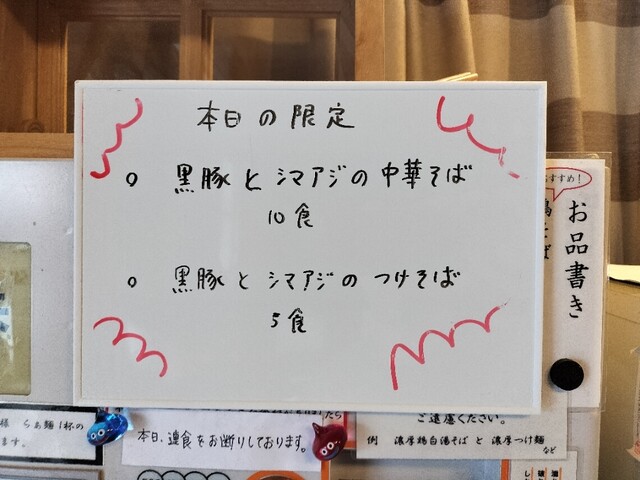 本日の限定
○ 黒豚とシマアジの中華そば
10食
○ 黒豚とシマアジの つけそば
5食
すすめ!
お品書き
様 らぁ麺1杯の
ます。
本日、連食をお断りしております。
たら
ご遠慮ください。
例 濃厚鶏白湯そば と 濃厚つけ麺
など